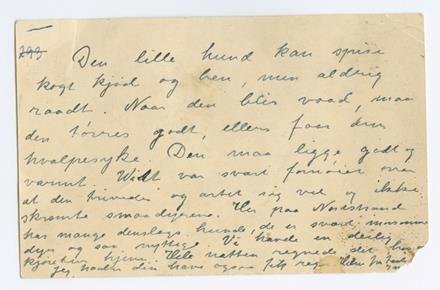 293
Den lille hund kan spise
kogt kjød og ben, men aldrig
raadt. Naar den blir vaad, maa
den tørres godt, ellers faar den
hvalpesyke. Den maa ligge godt og
varmt. Widt var svært fornøiet over
at den trivedes og artet sig vel og ikke
skræmte smaadyrene. Her paa Nordstrand
har mange denslags hunde, de er svært morsomme
dyr og saa nyttige. Vi havde en deilig
kjøretur hjem. Hele natten regnede det
Jeg haaber din have ogsaa fik reg